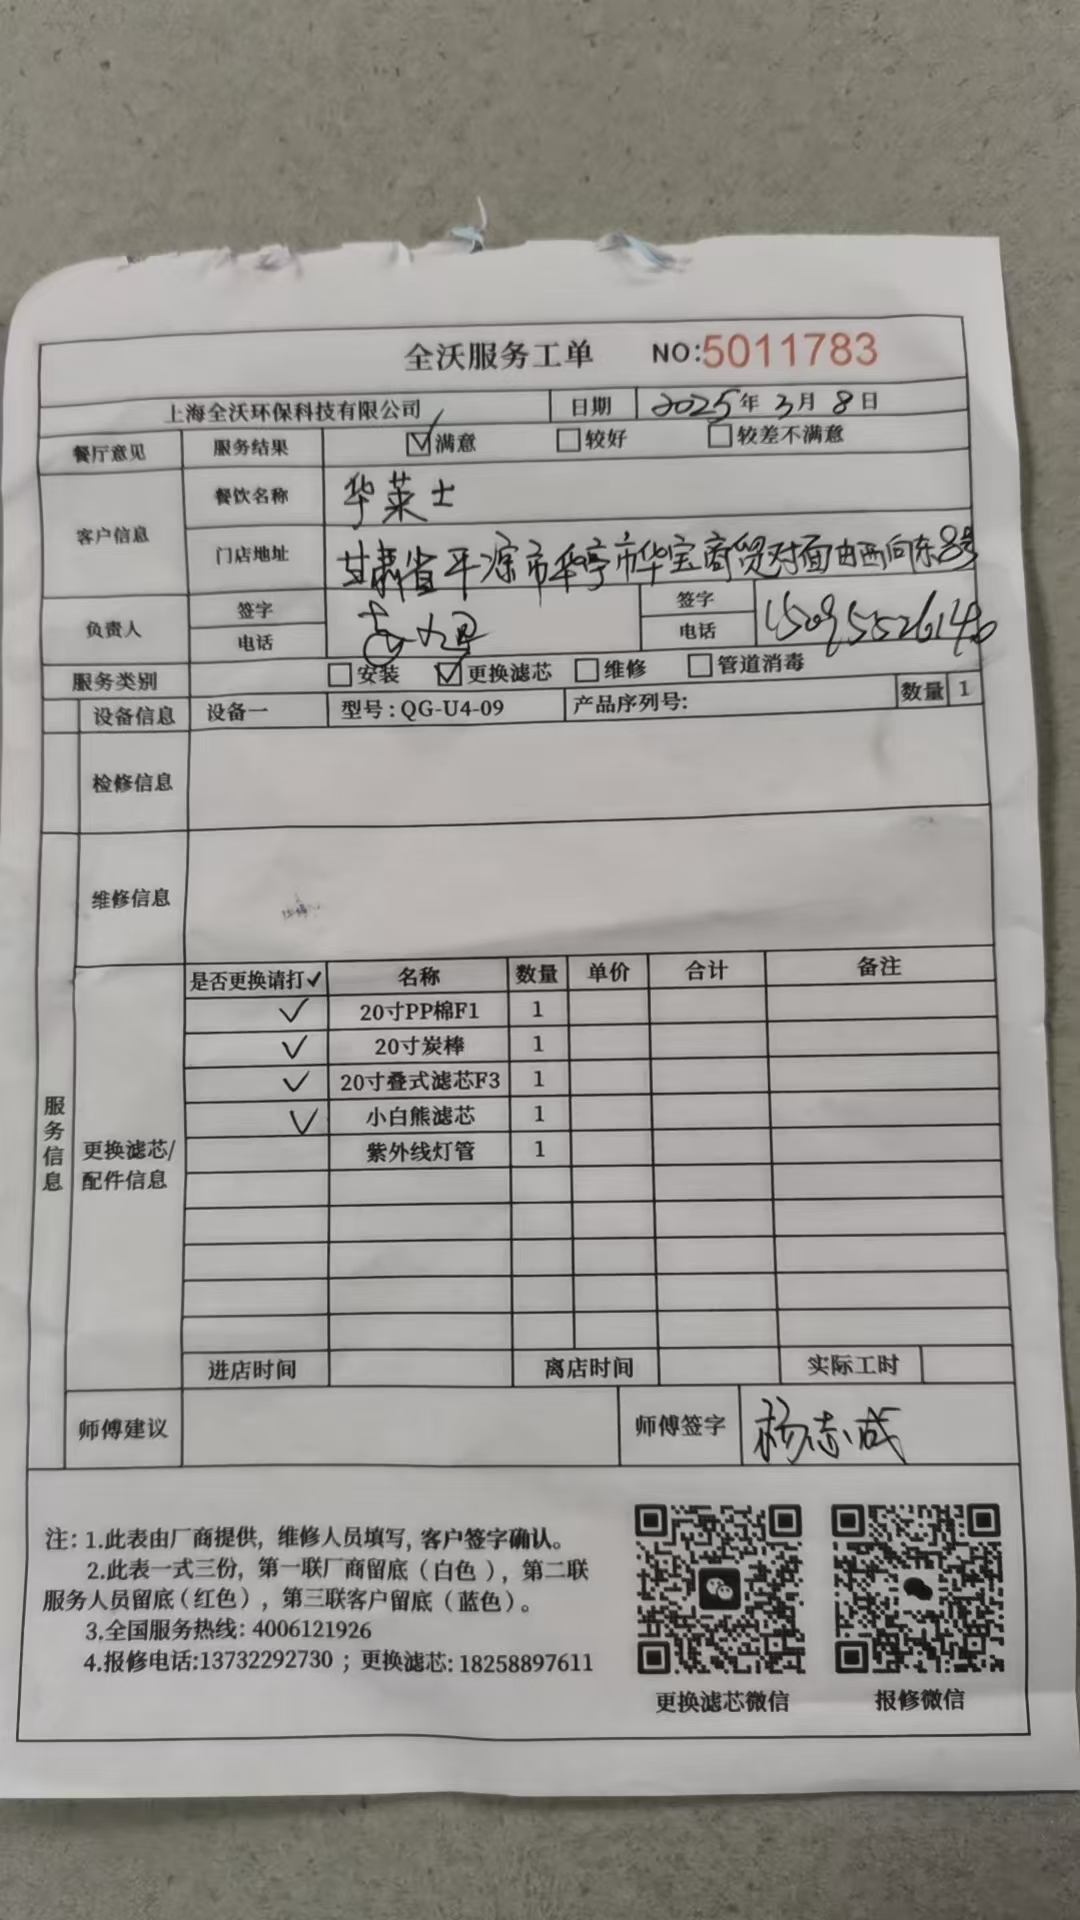 全沃服务工单 NO:5011783
上海全沃环保科技有限公司 日期 2025年3月8日
餐厅意见 服务结果 满意 较好 较差不满意
客户信息 餐饮名称 华莱士
门店地址 甘肃省平凉市华亭市华宝商贸对面由西向东8号
负责人 签字 签字
电话 电话
服务类别 安装 更换滤芯 维修 管道消毒
设备信息 设备一 型号:QG-U4-09 产品序列号: 数量 1
检修信息
维修信息
服务信息
更换滤芯/
配件信息
是否更换请打✓ 名称 数量 单价 合计 备注
✓ 20寸PP棉F1 1
✓ 20寸炭棒 1
✓ 20寸叠式滤芯F3 1
✓ 小白熊滤芯 1
紫外线灯管 1
进店时间 离店时间 实际工时
师傅建议 师傅签字 杨志成
注: 1.此表由厂商提供, 维修人员填写, 客户签字确认。
2.此表一式三份, 第一联厂商留底(白色), 第二联
服务人员留底(红色), 第三联客户留底(蓝色)。
3.全国服务热线: 4006121926
4.报修电话:13732292730 ; 更换滤芯: 18258897611
更换滤芯微信 报修微信